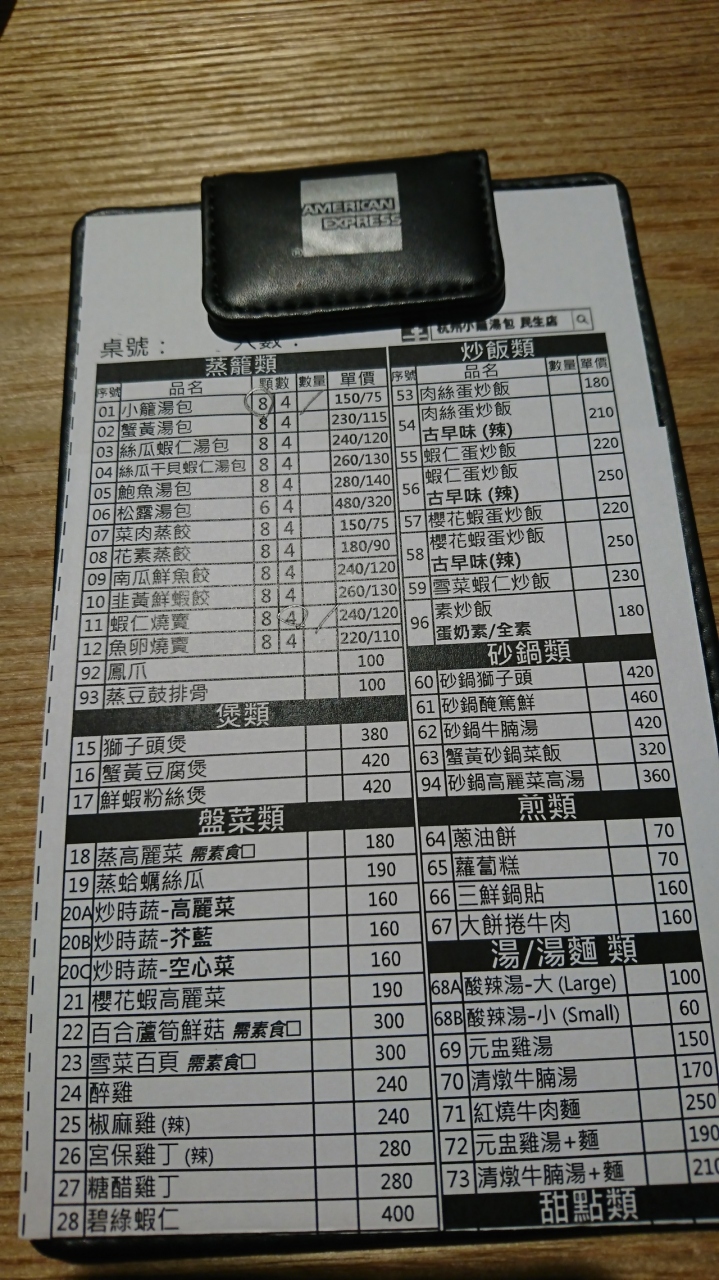 AMERICAN
EXPRESS
杭州小籠湯包 民生店
桌號：
人數：
蒸籠類
序號 品名 顆數 數量 單價
01 小籠湯包 8 4 150/75
02 蟹黃湯包 8 4 230/115
03 絲瓜蝦仁湯包 8 4 240/120
04 絲瓜干貝蝦仁湯包 8 4 260/130
05 鮑魚湯包 8 4 280/140
06 松露湯包 6 4 480/320
07 菜肉蒸餃 8 4 150/75
08 花素蒸餃 8 4 180/90
09 南瓜鮮魚餃 8 4 240/120
10 韭黃鮮蝦餃 8 4 260/130
11 蝦仁燒賣 8 4 240/120
12 魚卵燒賣 8 4 220/110
92 鳳爪 100
93 蒸豆鼓排骨 100
煲類
15 獅子頭煲 380
16 蟹黃豆腐煲 420
17 鮮蝦粉絲煲 420
盤菜類
18 蒸高麗菜 需素食□ 180
19 蒸蛤蠣絲瓜 190
20A 炒時蔬-高麗菜 160
20B 炒時蔬-芥藍 160
20C 炒時蔬-空心菜 160
21 櫻花蝦高麗菜 190
22 百合蘆筍鮮菇 需素食□ 300
23 雪菜百頁 需素食□ 300
24 醉雞 240
25 椒麻雞 (辣) 240
26 宮保雞丁 (辣) 280
27 糖醋雞丁 280
28 碧綠蝦仁 400
炒飯類
序號 品名 數量 單價
53 肉絲蛋炒飯 180
54 肉絲蛋炒飯 210
古早味 (辣)
55 蝦仁蛋炒飯 220
56 蝦仁蛋炒飯 250
古早味 (辣)
57 櫻花蝦蛋炒飯 220
58 櫻花蝦蛋炒飯 250
古早味(辣)
59 雪菜蝦仁炒飯 230
96 素炒飯 180
蛋奶素/全素
砂鍋類
60 砂鍋獅子頭 420
61 砂鍋醃篤鮮 460
62 砂鍋牛腩湯 420
63 蟹黃砂鍋菜飯 320
94 砂鍋高麗菜高湯 360
煎類
64 蔥油餅 70
65 蘿蔔糕 70
66 三鮮鍋貼 160
67 大餅捲牛肉 160
湯/湯麵 類
68A 酸辣湯-大 (Large) 100
68B 酸辣湯-小 (Small) 60
69 元盅雞湯 150
70 清燉牛腩湯 170
71 紅燒牛肉麵 250
72 元盅雞湯+麵 190
73 清燉牛腩湯+麵 210
甜點類